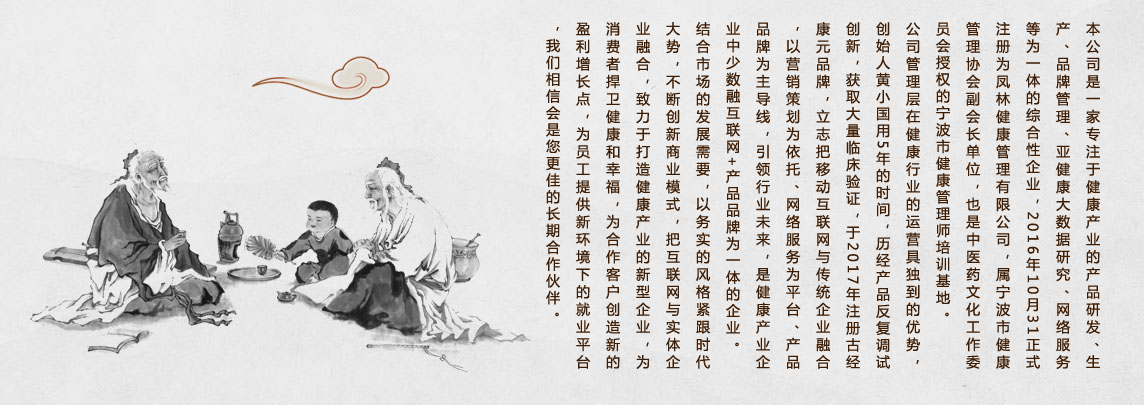 本公司是一家专注于健康产业的产品研发、生
产、品牌管理、亚健康大数据研究、网络服务
等为一体的综合性企业,2016年10月31正式
注册为凤林健康管理有限公司,属宁波市健康
管理协会副会长单位,也是中医药文化工作委
员会授权的宁波市健康管理师培训基地。
公司管理层在健康行业的运营具独到的优势,
创始人黄小国用5年的时间,历经产品反复调试
创新,获取大量临床验证,于2017年注册古经
康元品牌,立志把移动互联网与传统企业融合
,以营销策划为依托、网络服务为平台、产品
品牌为主导线,引领行业未来,是健康产业企
业中少数融互联网+产品品牌为一体的企业。
结合市场的发展需要,以务实的风格紧跟时代
大势,不断创新商业模式,把互联网与实体企
业融合,致力于打造健康产业的新型企业,为
消费者捍卫健康和幸福,为合作客户创造新的
盈利增长点,为员工提供新环境下的就业平台
,我们相信会是您更佳的长期合作伙伴。